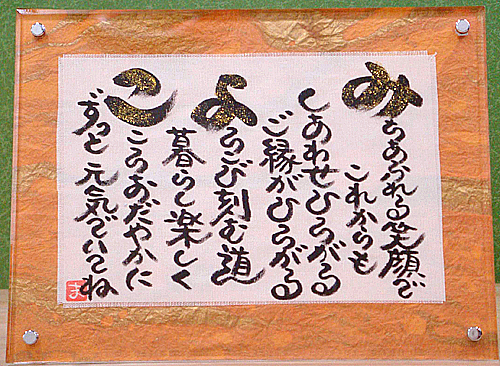 みちあふれる笑顔で
これからも
しあわせひろがる
ご縁がひろがる
よろこび刻む道
暮らし楽しく
こころおだやかに
ずっと元気でいてね
ま